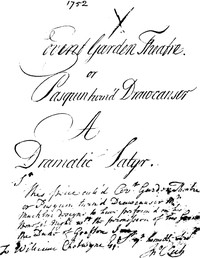 1752
X
Covent Garden Theatre.
or
Pasquin turn'd Drawcansir
A
Dramatic Satyr.
Sr
This Piece call'd Covt. Garden Theatre
or Pasquin turn'd Drawcansir Mr.
Macklin designs to have perform'd at his
Benefit Night with the permission of
the Duke of Grafton
To William Chetwynd Esqr. Jno. Rich